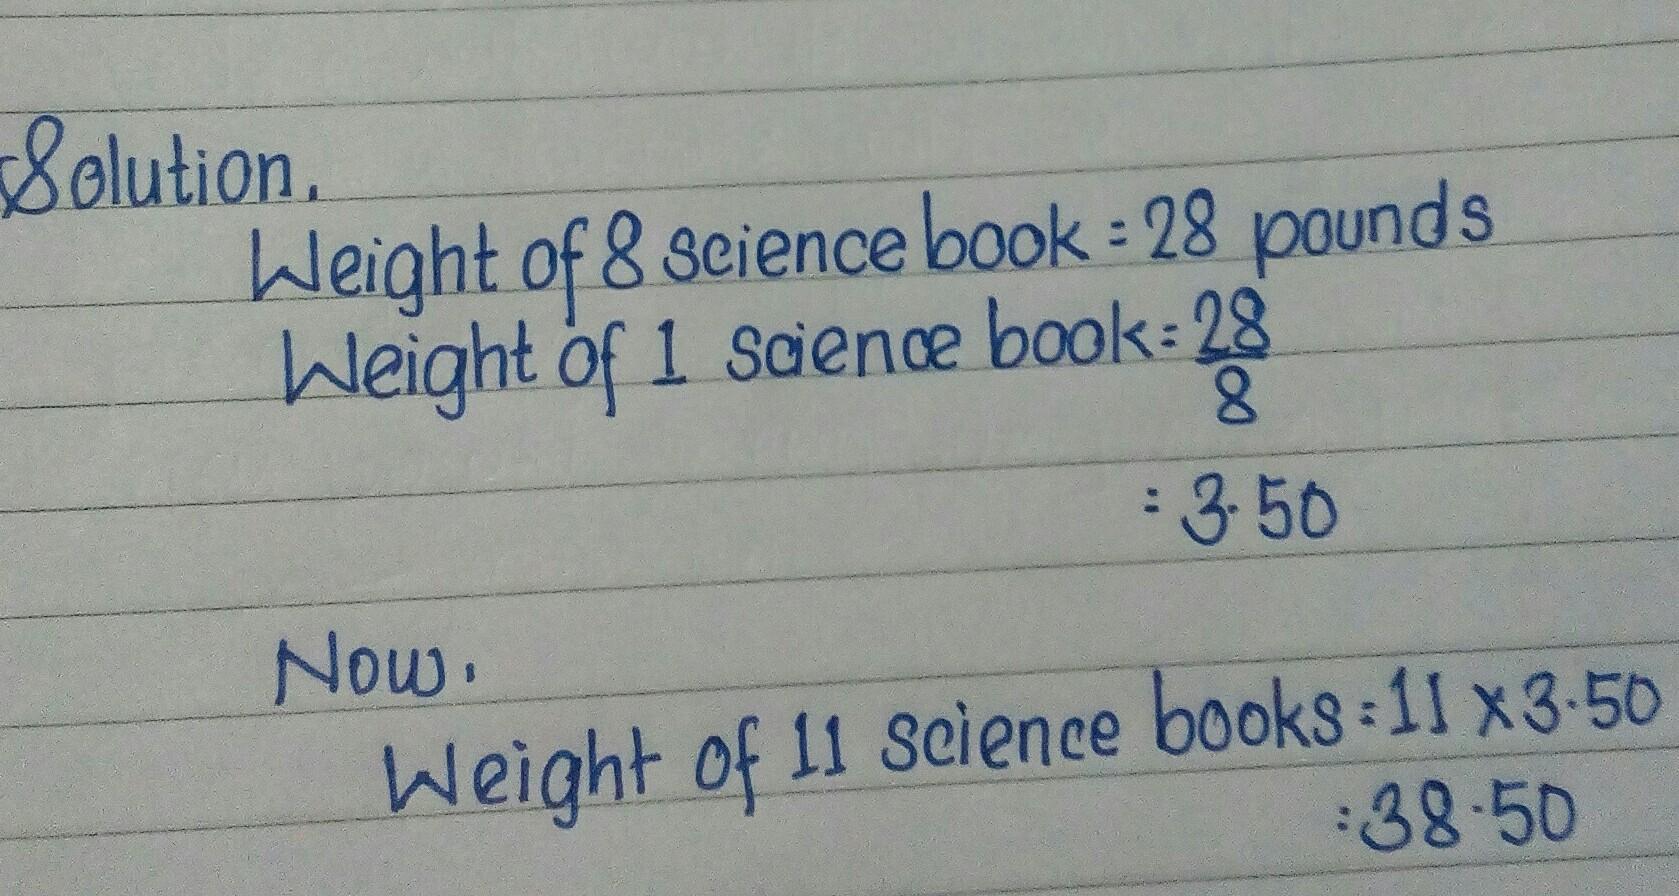 Solution.
Weight of 8 science book = 28 pounds
Weight of 1 science book = 28
8
= 3.50
Now.
Weight of 11 science books = 11 x 3.50
= 38.50